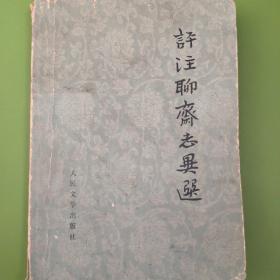 評注聊齋志異選
人民文学出版社